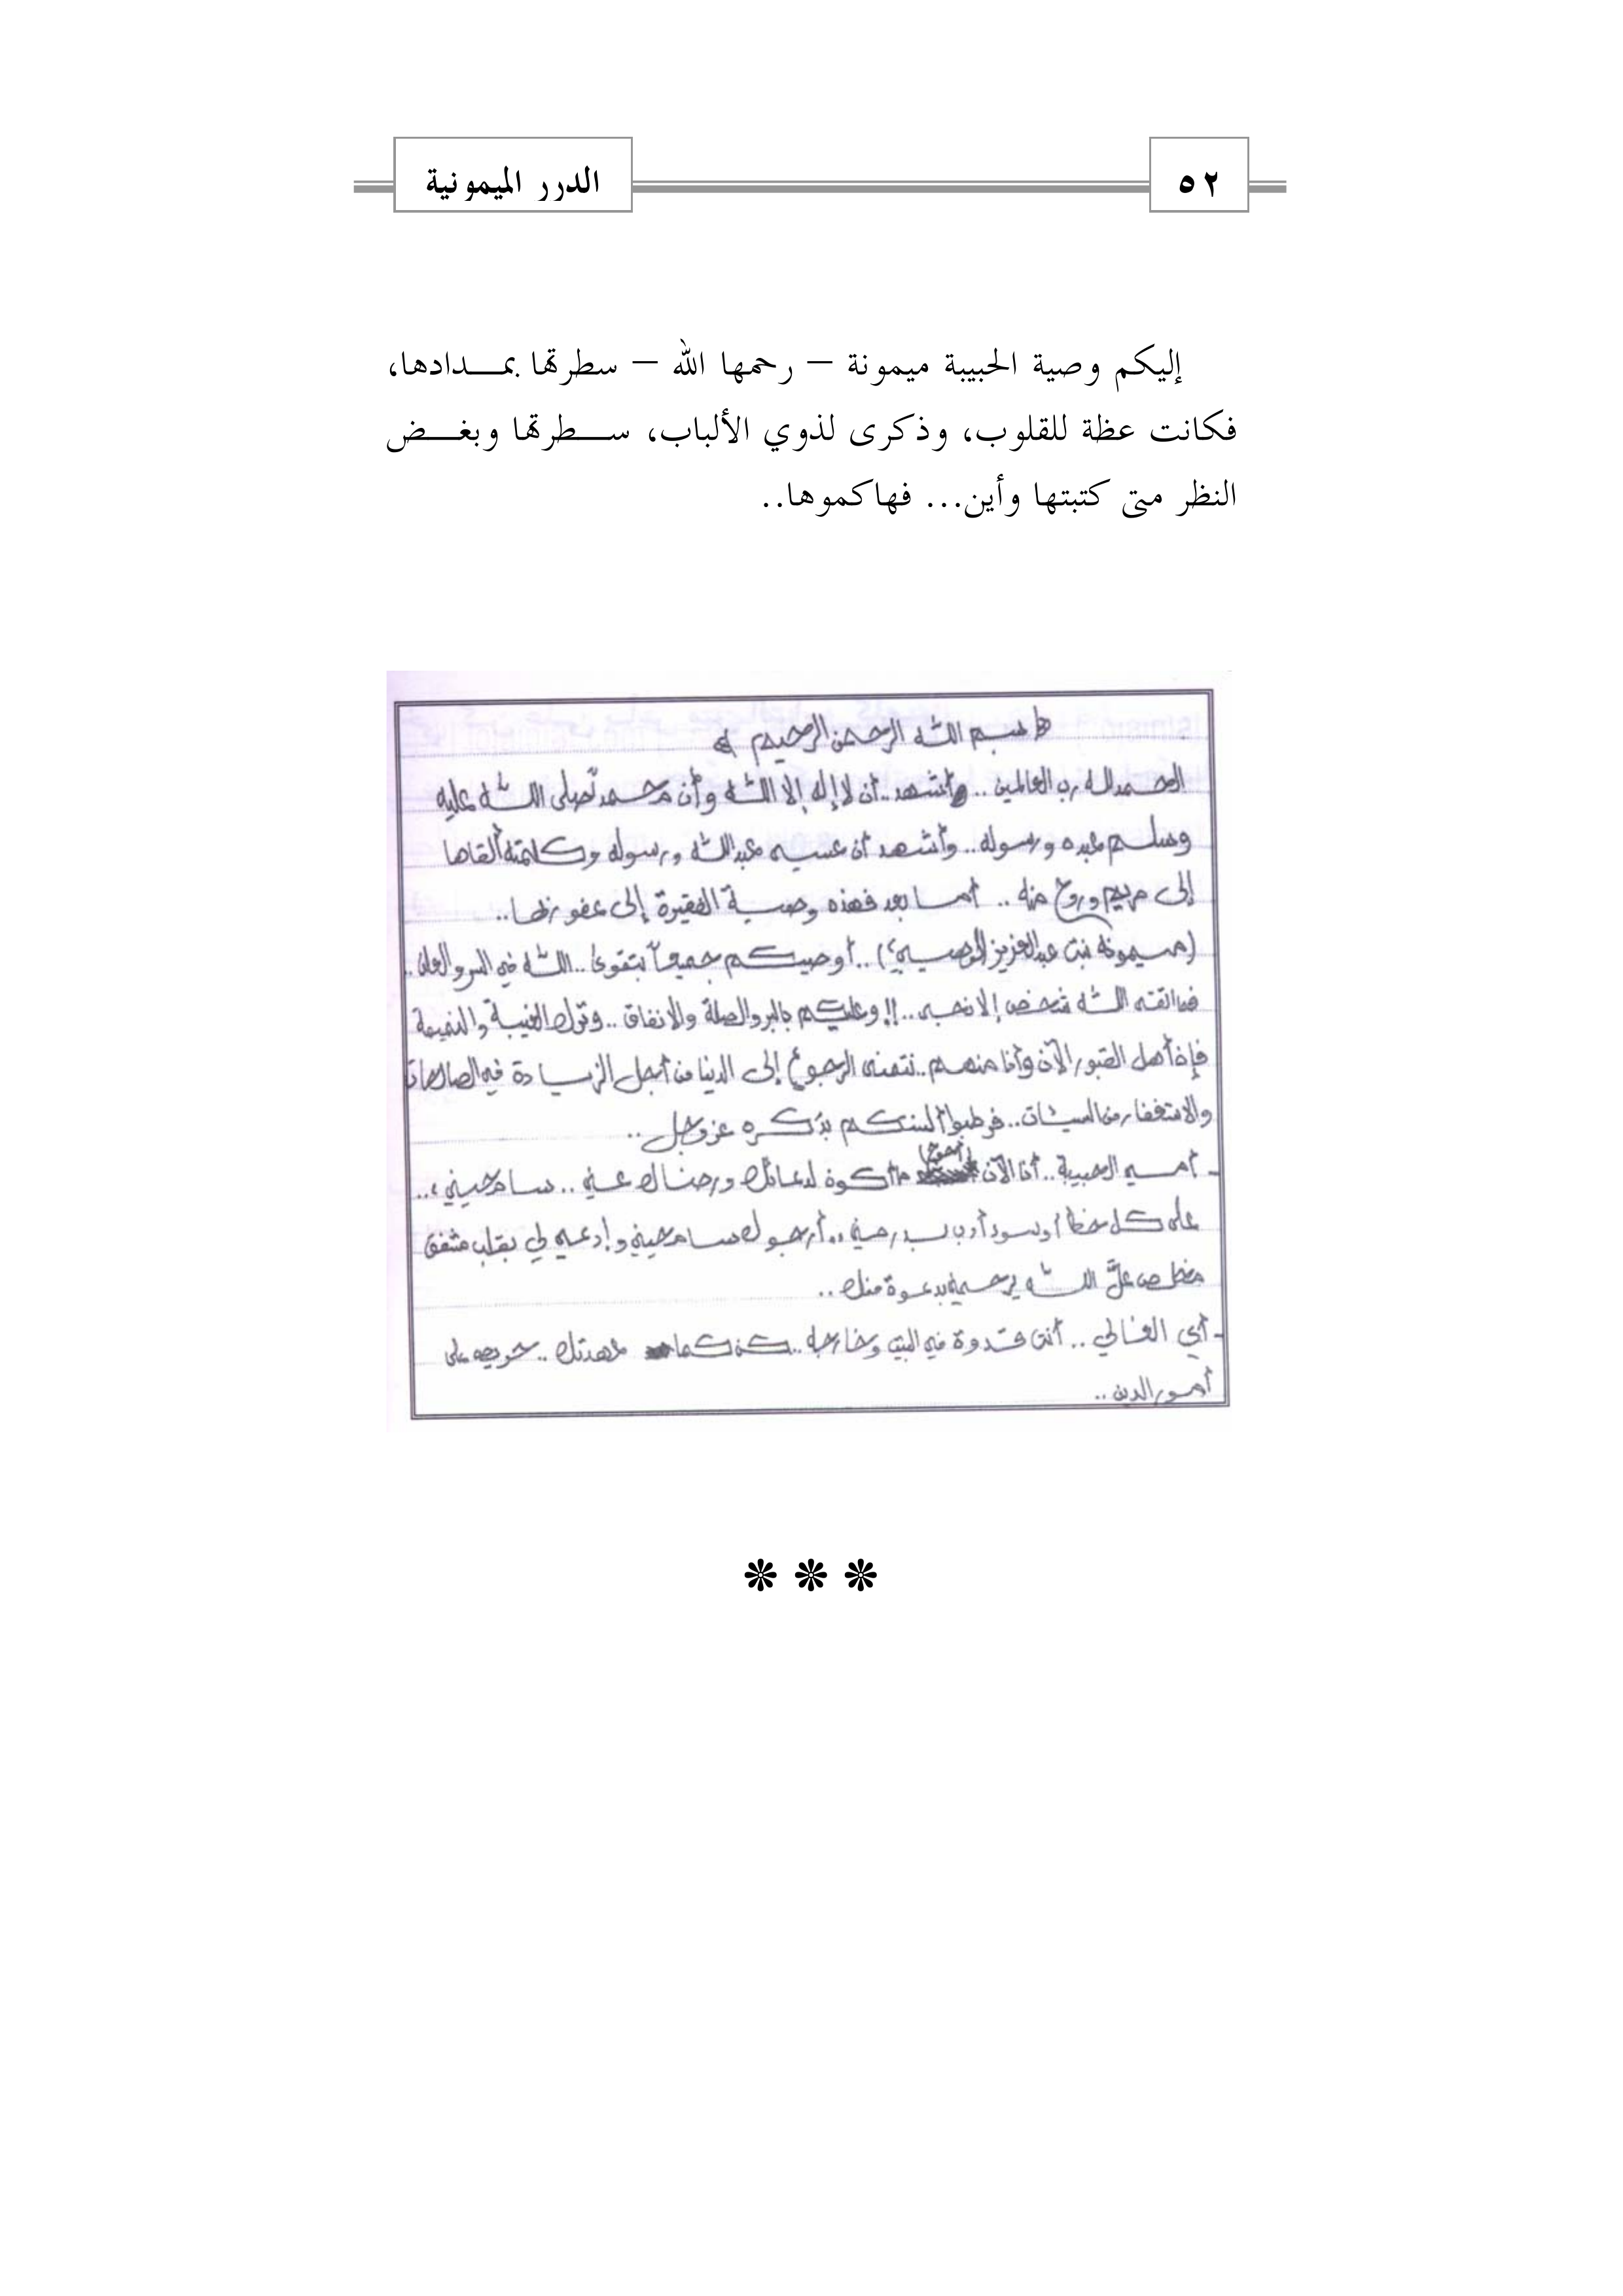 ٥٢
الدرر الميمونية
إليكم وصية الحبيبة ميمونة – رحمها الله – سطرتها بمدادها،
فكانت عظة للقلوب، وذكرى لذوي الألباب، سطرتها وبغض
النظر متى كتبتها وأين... فهاكموها..
بسم الله الرحمن الرحيم
الحمد لله رب العالمين .. وأشهد .. أن لا إله إلا الله وأن محمد صلى الله عليه
وسلم عبده ورسوله .. وأشهد أن عيسى عبد الله ورسوله وكلمته ألقاها
إلى مريم وروح منه .. أما بعد فهذه وصية الفقيرة إلى عفو ربها ..
(ميمونة بنت عبدالعزيز) .. أوصيكم جميعاً بتقوى .. الله في السر والعلن ..
فما اتقى الله شخص إلا نجى .. !! وعليكم بالبر والصلة والانفاق .. وترك الغيبة والنميمة
فإن أهل القبور الآن وأنا منهم .. نتمنى الرجوع إلى الدنيا من أجل الزيادة في الصالحات
والاستغفار من السيئات .. فرطبوا ألسنتكم بذكره عز وجل ..
- أمي الحبيبة .. أنا الآن (أحوج) ما أكون لدعائك ورضاك عني .. سامحيني ..
على كل خطأ أو سوء أدب بدر مني .. أرجوك سامحيني وادعي لي بقلب مشفق
مخلص علَّ الله يرحمني بدعوة منك ..
- أبي الغالي .. أنت قدوة في البيت وخارجه .. كن كما عهدتك .. حريص على
أمور الدين ..